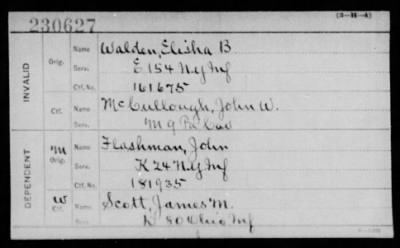 230627
(3-H-4)
INVALID
Orig.
Name Walden, Elisha B
Serv. E 154 N.Y. Inf
Ctf. No. 161675
Ctf.
Name McCullough, John W.
Serv. M 9 Pa Cav
DEPENDENT
M
Orig.
Name Flashman, John
Serv. K 24 N.Y. Inf
Ctf. No. 181935
W
Ctf.
Name Scott, James M.
Serv. K 80 Ohio Inf